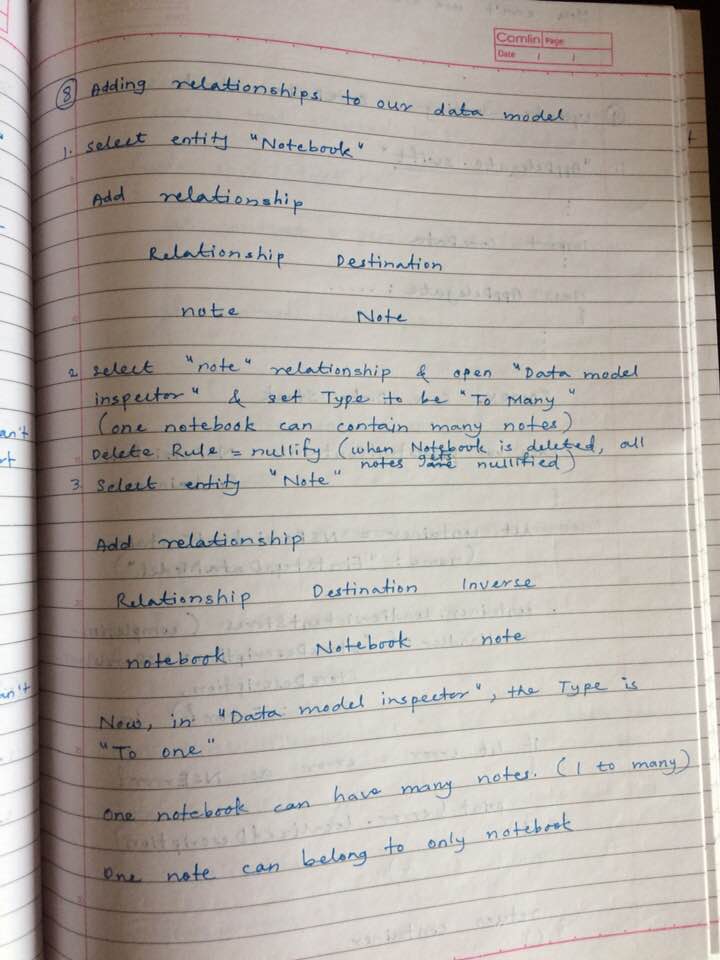 Comlin Page
Date / /
⑧ Adding relationships to our data model
1. Select entity "Notebook"
Add relationship
Relationship Destination
note Note
2. Select "note" relationship & open "Data model
inspector" & set Type to be "To Many"
(one notebook can contain many notes)
Delete Rule = nullify (when Notebook is deleted, all
notes are nullified)
3. Select entity "Note"
Add relationship
Relationship Destination Inverse
notebook Notebook note
Now, in "Data model inspector", the Type is
"To one"
One notebook can have many notes. (1 to many)
One note can belong to only notebook
an't
an't